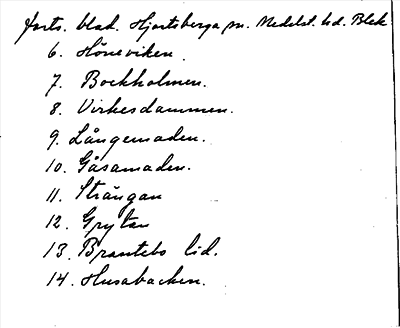 forts. blad. Hjortsberga sn. Medelst. hd. Blek
6. Höneviken.
7. Bockholmen.
8. Virkesdammen.
9. Långemaden.
10. Gåsamaden.
11. Strängan
12. Grytan
13. Brantebo lid.
14. Husabacken.